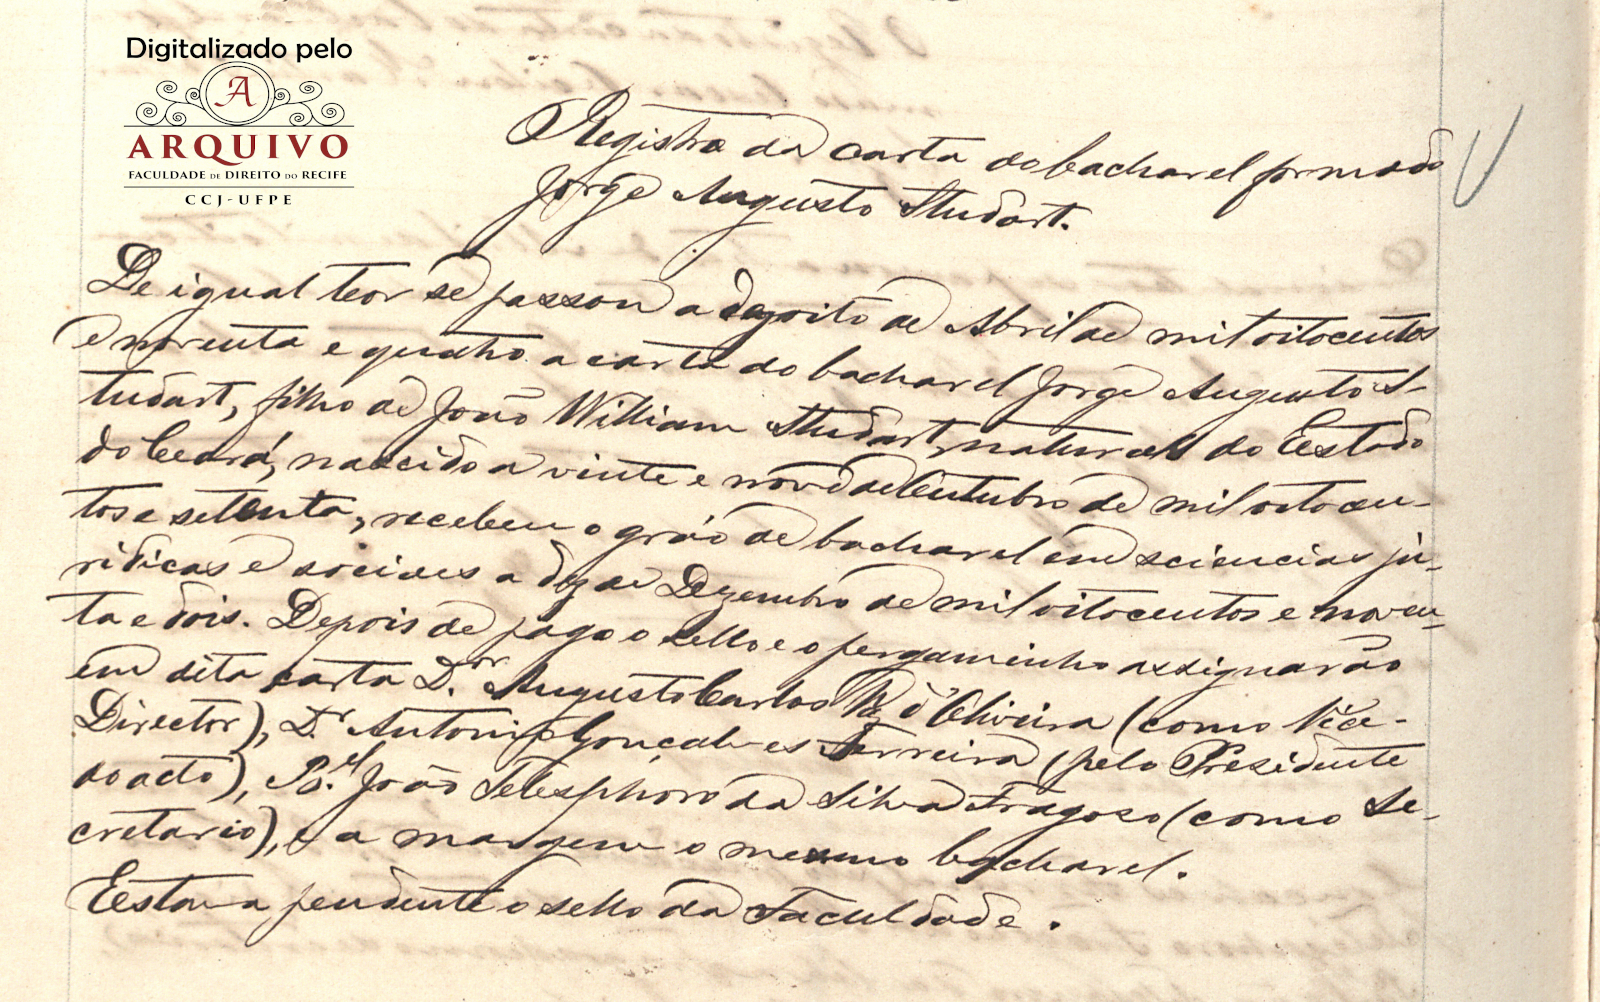 Digitalizado pelo
A
ARQUIVO
FACULDADE DE DIREITO DO RECIFE
CCJ-UFPE
Registro da carta do bacharel formado
Jorge Augusto Studart.
De igual teor se passou a dezoito de Abril de mil oitocentos
e noventa e quatro a carta do bacharel Jorge Augusto S-
tudart, filho de João William Studart, natural do Estado
do Ceará, nascido a vinte e nove de Outubro de mil oitocen-
tos e setenta, recebeu o gráo de bacharel em sciencias ju-
ridicas e sociaes a dez de Dezembro de mil oitocentos e noven-
ta e dois. Depois de pago o sello e o pergaminho assignarão
em dita carta D.or Augusto Carlos Vaz d'Oliveira (como Vice-
Director), D.r Antonio Gonçalves Ferreira (pelo Presidente
do acto), B.el João Telesphoro da Silva Fragoso (como Se-
cretario), e a margem o mesmo bacharel.
Estava pendente o sello da Faculdade.